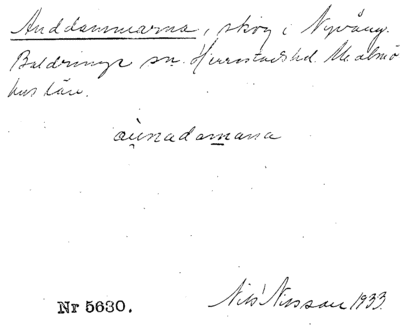 Anddammarna, skog i Nyvång.
Baldringe sn. Herrestads hd. Malmö
hus län.
aúnadamana
Nr 5630.
Nils Nilsson 1933.